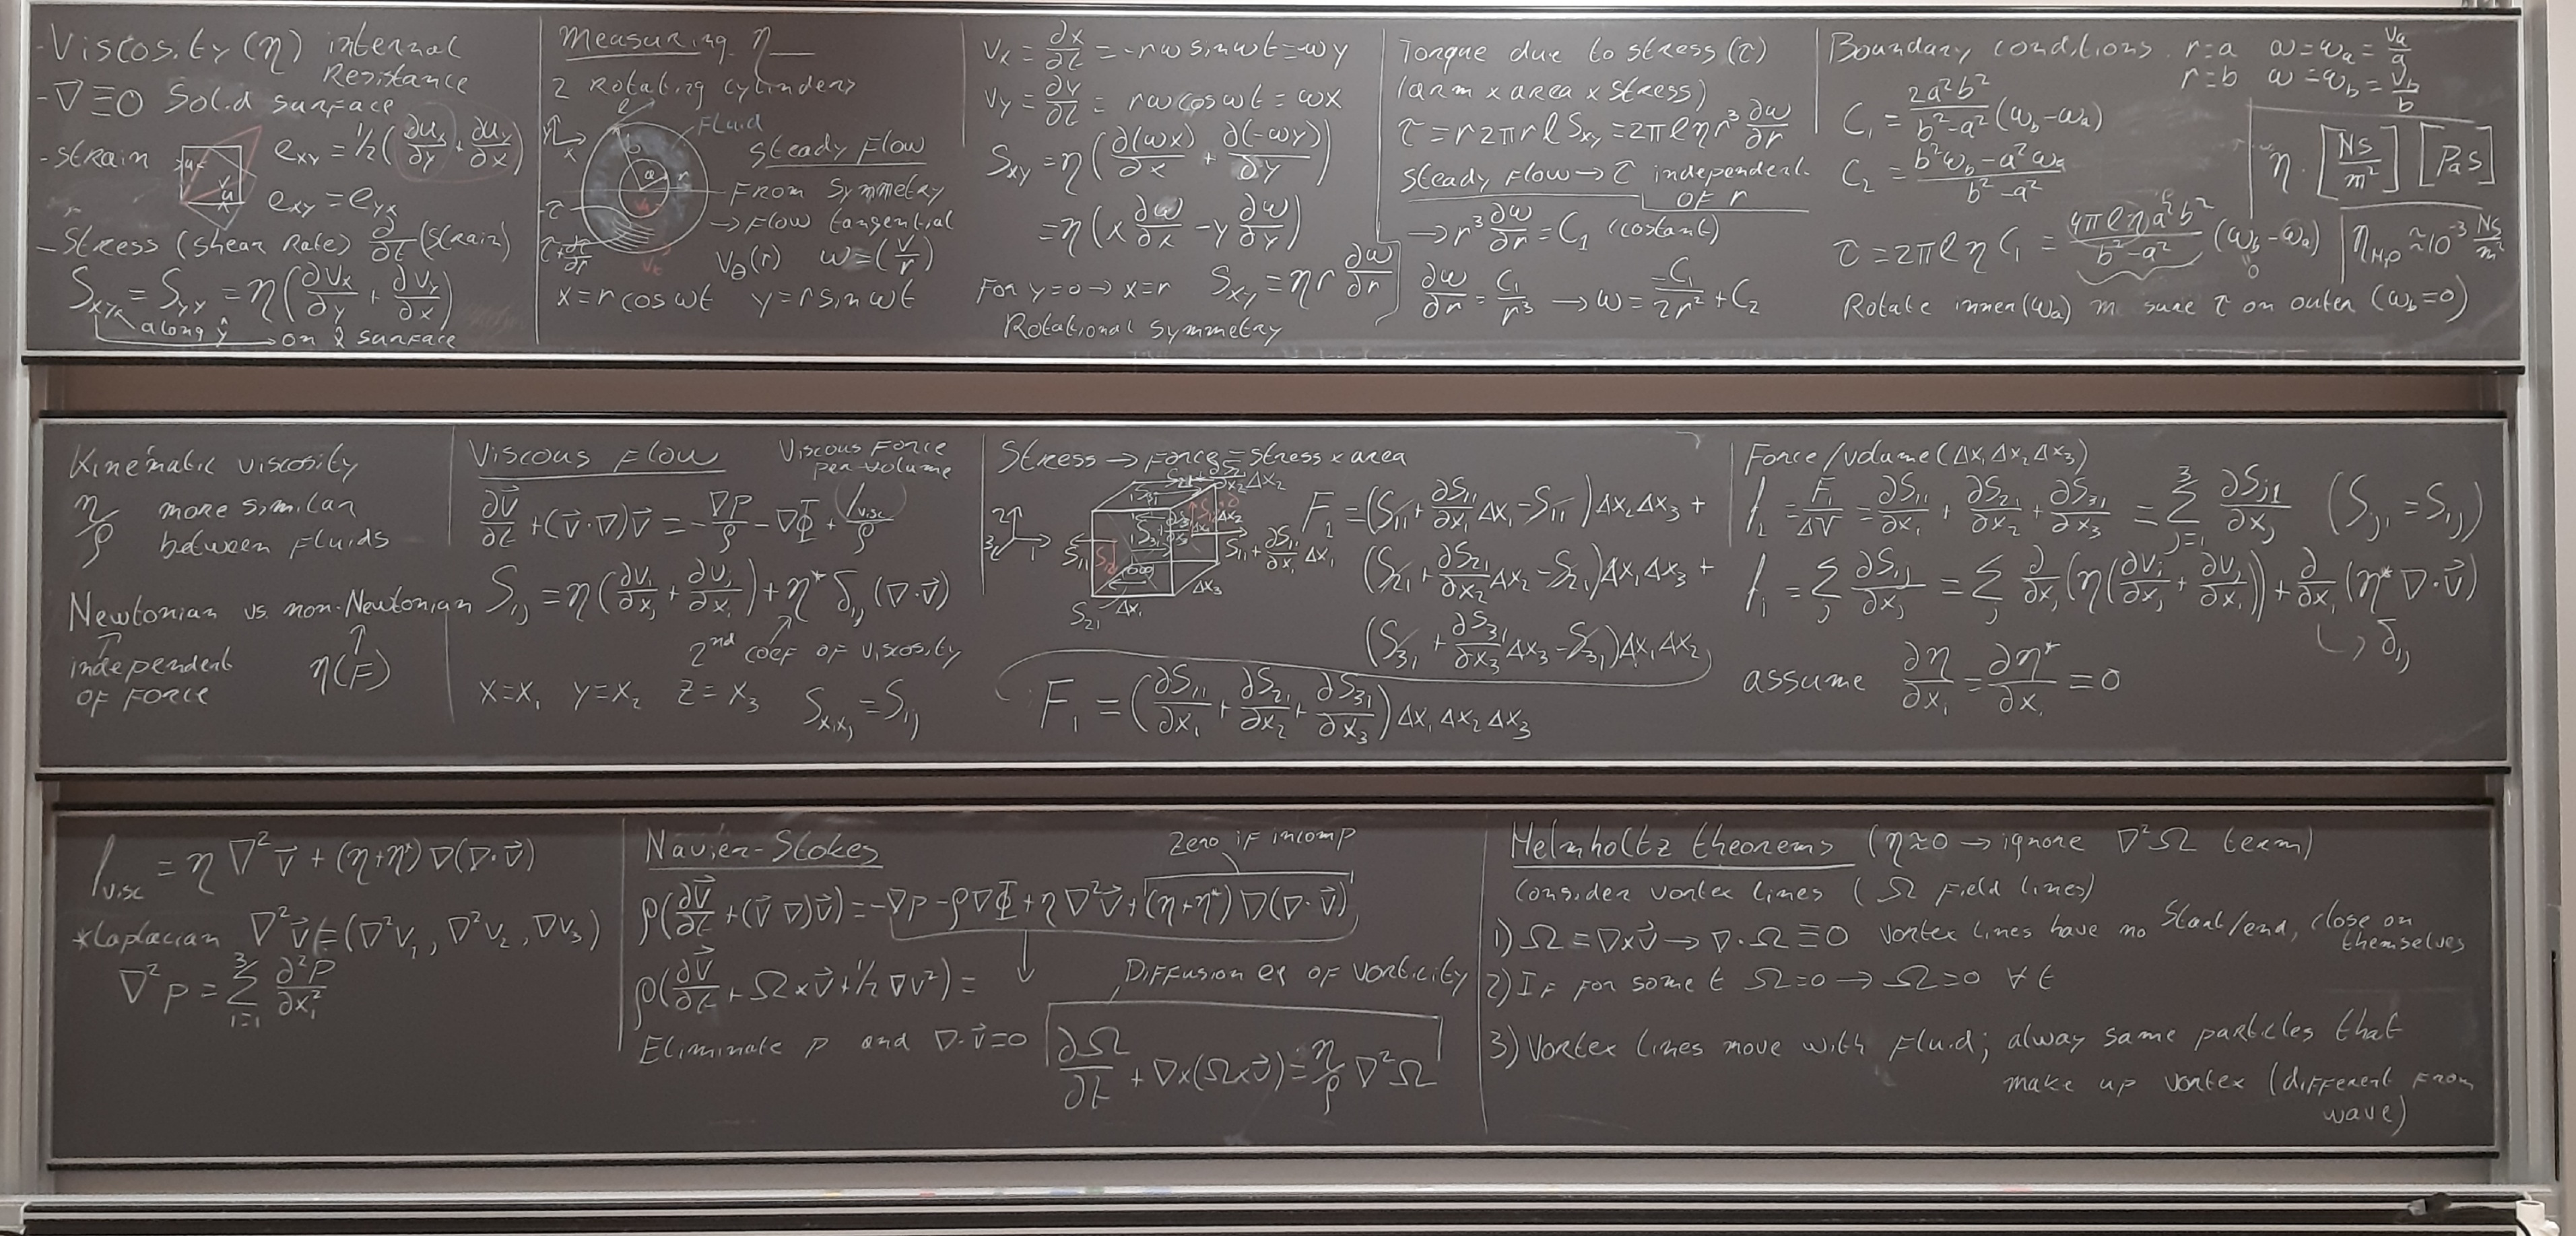 -Viscosity (η) internal
Resistance
-∇≡0 Solid surface
-strain e_xy = 1/2(∂u_x/∂y + ∂u_y/∂x)
e_xy = e_yx
-Stress (shear Rate) ∂/∂t (strain)
S_xy = S_yx = η(∂v_x/∂y + ∂v_y/∂x)
along ŷ
on x̂ surface
Measuring η
2 Rotating cylinders
Fluid
Steady Flow
From symmetry
→ Flow tangential
V_θ(r) ω=(v/r)
x=r cos ωt y=r sin ωt
v_x = ∂x/∂t = -rω sin ωt = -ωy
v_y = ∂y/∂t = rω cos ωt = ωx
S_xy = η(∂(ωx)/∂x + ∂(-ωy)/∂y)
= η(x ∂ω/∂x - y ∂ω/∂y)
For y=0 → x=r S_xy = η r ∂ω/∂r
Rotational symmetry
Torque due to stress (τ)
(arm x area x stress)
τ = r 2πrl S_xy = 2πlη r³ ∂ω/∂r
steady flow → τ independent
OF r
→ r³ ∂ω/∂r = C₁ (costant)
∂ω/∂r = C₁/r³ → ω = -C₁/2r² + C₂
Boundary conditions r=a ω=ω_a = v_a/a
r=b ω=ω_b = v_b/b
C₁ = 2a²b²/(b²-a²) (ω_b-ω_a)
C₂ = (b²ω_b - a²ω_a)/(b²-a²)
η · [Ns/m²] [Pa s]
τ = 2πlηC₁ = 4πlηa²b²/(b²-a²) (ω_b-ω_a)
0
≈10⁻³ Ns/m²
Rotate inner (ω_a) m sure τ on outer (ω_b=0)
Kinematic viscosity
η/ρ more similar
between Fluids
Newtonian vs. non-Newtonian
independent
OF Force
η(F)
Viscous Flow
Viscous Force
per volume
∂v⃗/∂t + (v⃗·∇)v⃗ = -∇p/ρ - ∇Φ + f_visc/ρ
S_ij = η(∂v_i/∂x_j + ∂v_j/∂x_i) + η* δ_ij (∇·v⃗)
2nd coef of viscosity
x=x₁ y=x₂ z=x₃ S_x_ix_j = S_ij
Stress → Force = stress x area
2
3
1
S₁₁
S₁₁ + ∂S₁₁/∂x₁ Δx₁
S₂₁
Δx₁
Δx₃
F₂ = (S₁₁ + ∂S₁₁/∂x₁ Δx₁ - S₁₁) Δx₂ Δx₃ +
(S₂₁ + ∂S₂₁/∂x₂ Δx₂ - S₂₁) Δx₁ Δx₃ +
(S₃₁ + ∂S₃₁/∂x₃ Δx₃ - S₃₁) Δx₁ Δx₂
F₁ = (∂S₁₁/∂x₁ + ∂S₂₁/∂x₂ + ∂S₃₁/∂x₃) Δx₁ Δx₂ Δx₃
Force/volume (Δx₁ Δx₂ Δx₃)
f₁ = F₁/ΔV = ∂S₁₁/∂x₁ + ∂S₂₁/∂x₂ + ∂S₃₁/∂x₃ = Σ_{j=1}^{3} ∂S_j1/∂x_j (S_ji = S_ij)
f_i = Σ_j ∂S_ij/∂x_j = Σ_j ∂/∂x_j (η(∂v_i/∂x_j + ∂v_j/∂x_i)) + ∂/∂x_i (η* ∇·v⃗)
↳ δ_ij
assume ∂η/∂x_i = ∂η*/∂x_i = 0
f_visc = η ∇²v⃗ + (η+η*) ∇(∇·v⃗)
*Laplacian ∇²v⃗ = (∇²v₁, ∇²v₂, ∇v₃)
∇²p = Σ_{i=1}^{3} ∂²p/∂x_i²
Navier-Stokes
Zero if incomp
ρ(∂v⃗/∂t + (v⃗ ∇)v⃗) = -∇p - ρ∇Φ + η∇²v⃗ + (η+η*) ∇(∇·v⃗)
ρ(∂v⃗/∂t + Ω×v⃗ + 1/2 ∇v²) =
Diffusion eq of vorticity
Eliminate p and ∇·v⃗=0
∂Ω/∂t + ∇×(Ω×v⃗) = η/ρ ∇²Ω
Helmholtz theorems (η≈0 → ignore ∇²Ω term)
Consider vortex lines (Ω Field lines)
1) Ω = ∇×v⃗ → ∇·Ω ≡ 0 vortex lines have no start/end, close on
themselves
2) If for some t Ω=0 → Ω=0 ∀ t
3) Vortex lines move with fluid; alway same particles that
make up vortex (different from
wave)